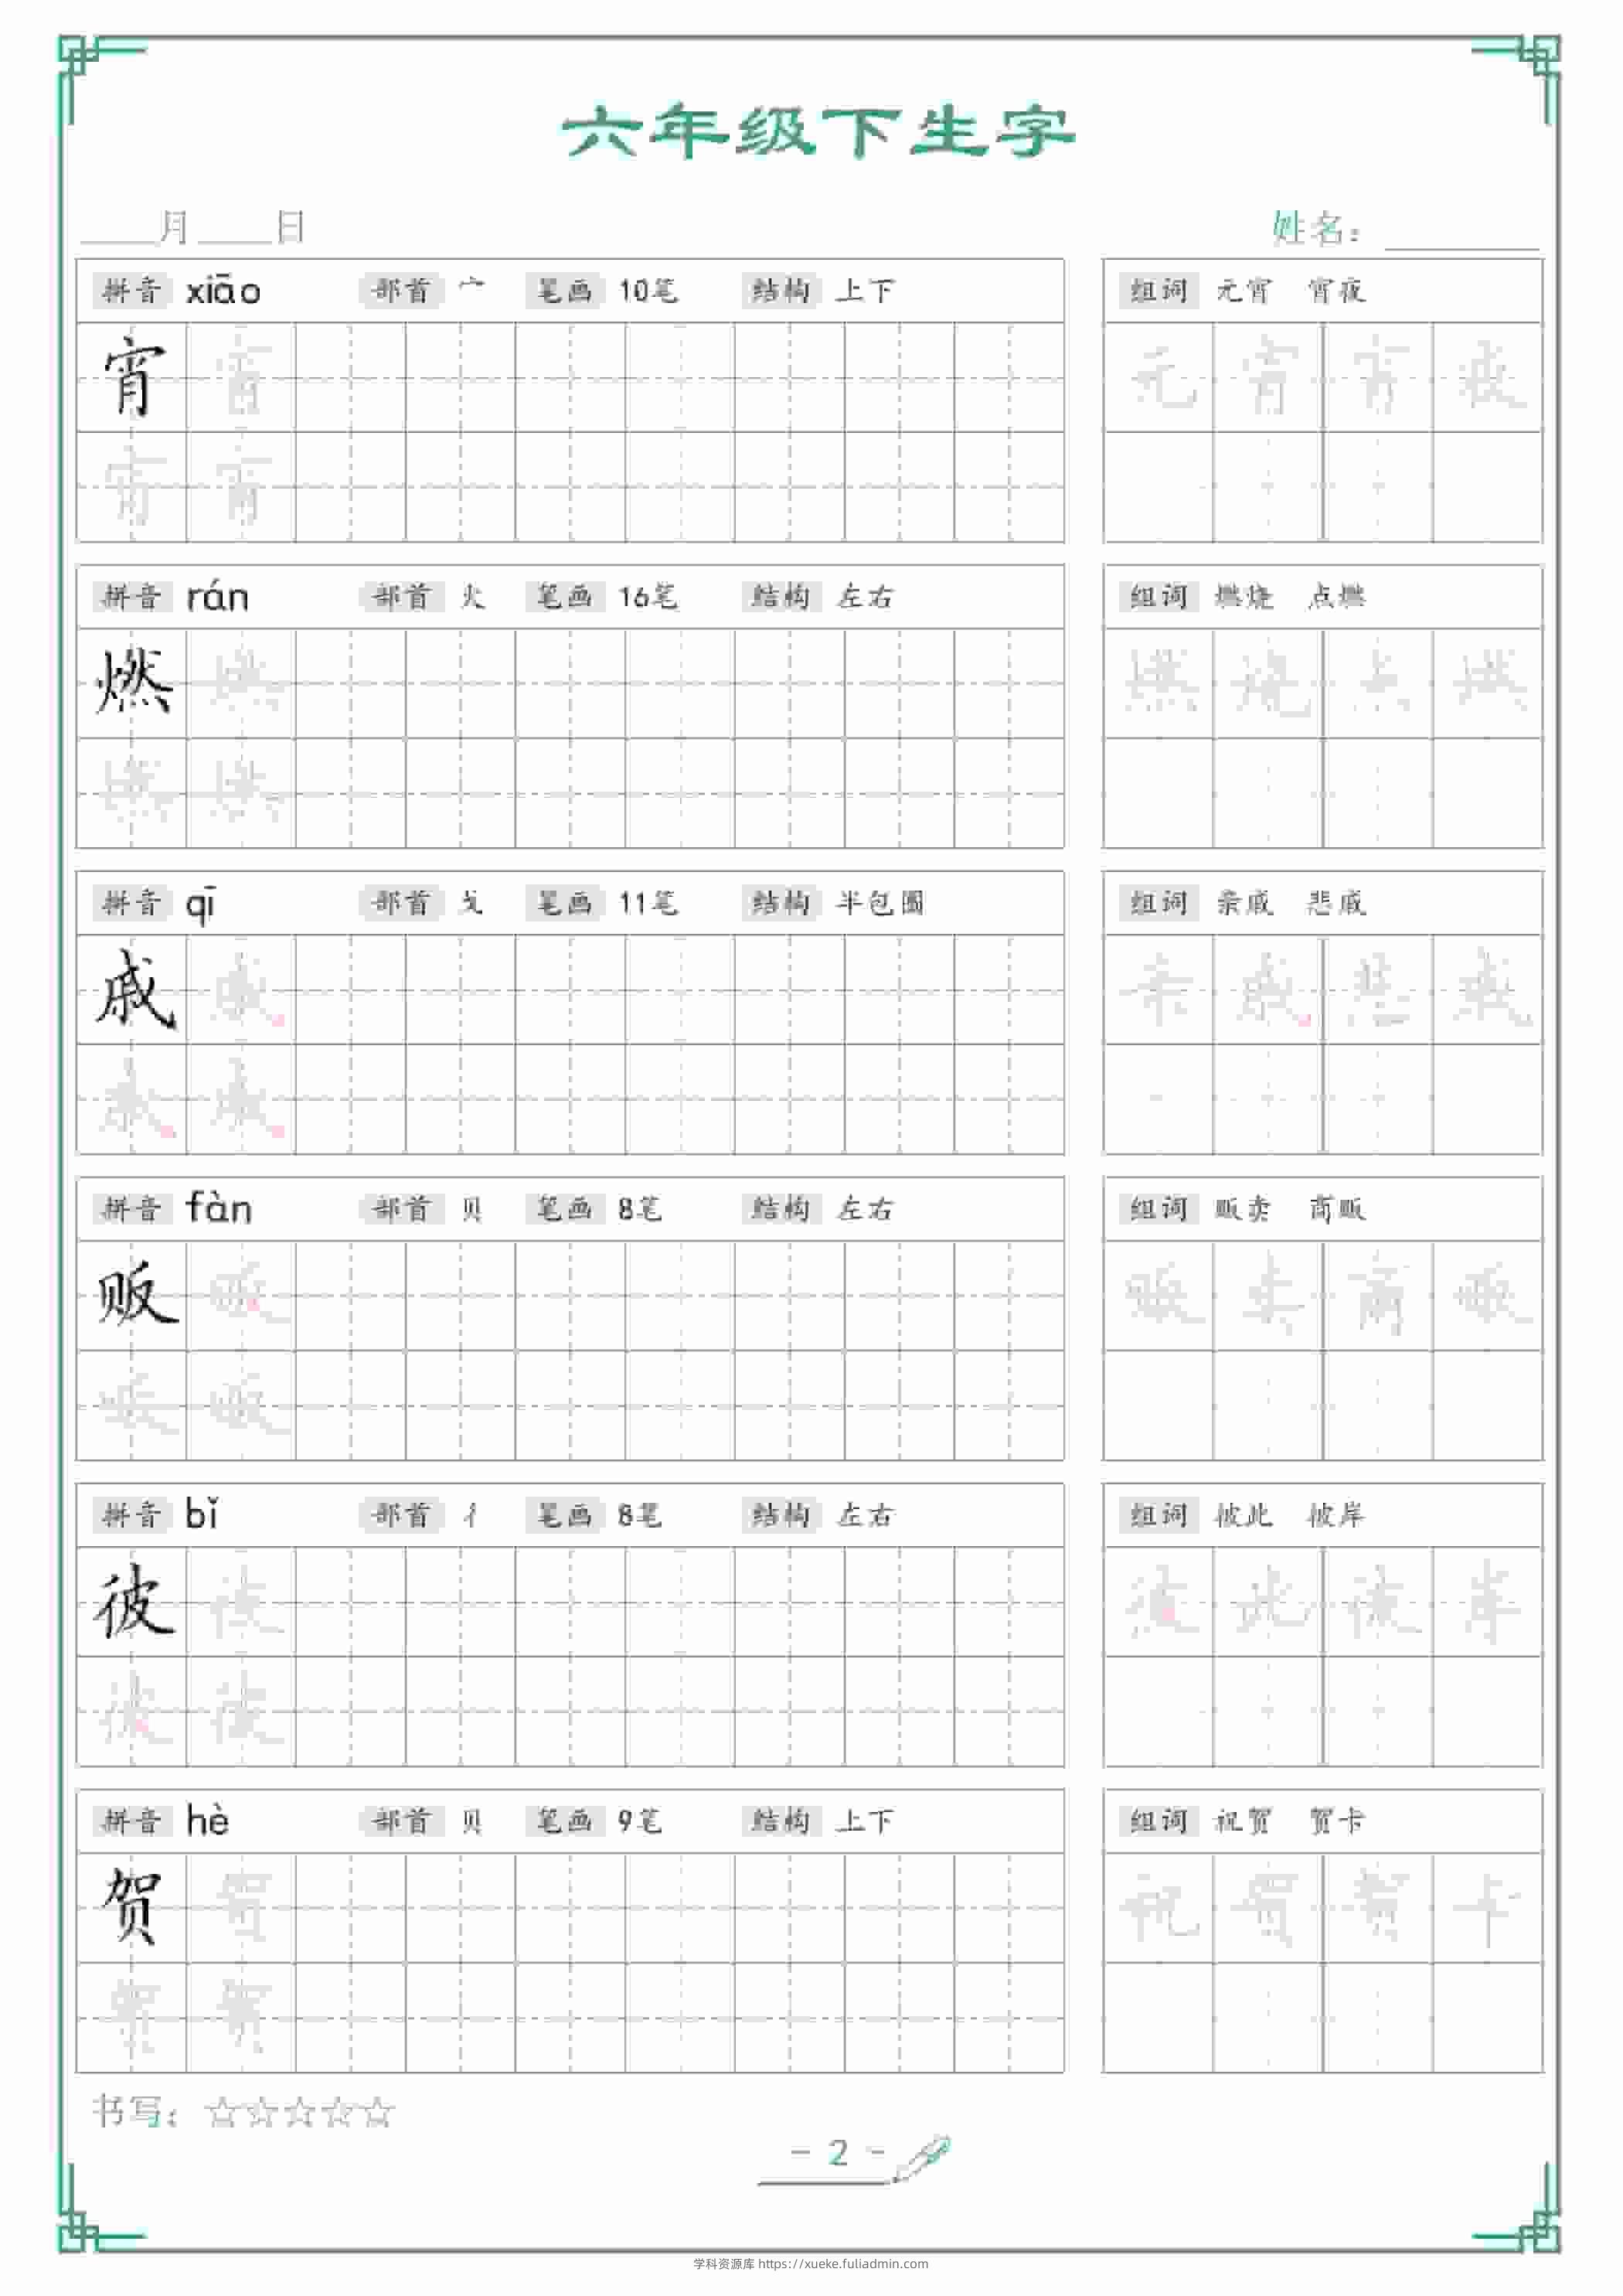 六年级下生字
____月____日 姓名：________
拼音 xiāo 部首 宀 笔画 10笔 结构 上下 组词 元宵 宵夜
宵 宵 元 宵 宵 夜
宵 宵
拼音 rán 部首 火 笔画 16笔 结构 左右 组词 燃烧 点燃
燃 燃 燃 烧 点 燃
燃 燃
拼音 qī 部首 戈 笔画 11笔 结构 半包围 组词 亲戚 悲戚
戚 戚 亲 戚 悲 戚
戚 戚
拼音 fàn 部首 贝 笔画 8笔 结构 左右 组词 贩卖 商贩
贩 贩 贩 卖 商 贩
贩 贩
拼音 bǐ 部首 彳 笔画 8笔 结构 左右 组词 彼此 彼岸
彼 彼 彼 此 彼 岸
彼 彼
拼音 hè 部首 贝 笔画 9笔 结构 上下 组词 祝贺 贺卡
贺 贺 祝 贺 贺 卡
贺 贺
书写：☆☆☆☆☆
- 2 -
学科资源库 https://xueke.fuliadmin.com